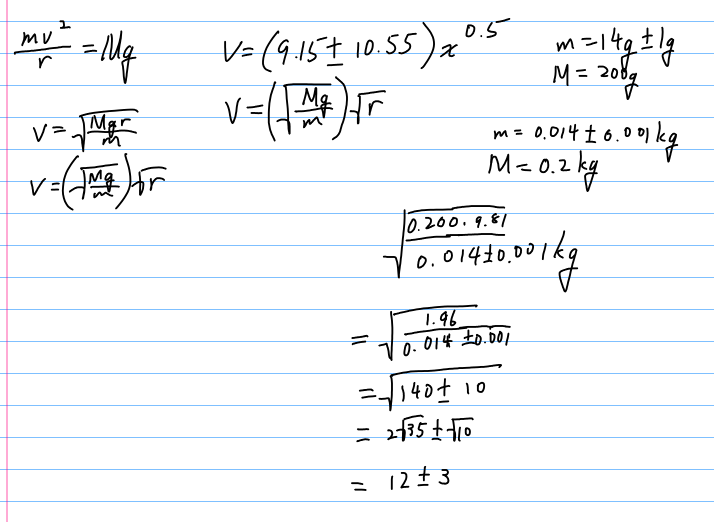 mv²/r = Mg
V = √(Mgr/m)
V = (√(Mg/m))√r
V = (9.15 ± 10.55)x^0.5
V = (√(Mg/m))√r
m = 14g ± 1g
M = 200g
m = 0.014 ± 0.001 kg
M = 0.2 kg
√(0.200 · 9.81 / 0.014 ± 0.001 kg)
= √(1.96 / 0.014 ± 0.001)
= √(140 ± 10)
= 2√35 ± √10
= 12 ± 3